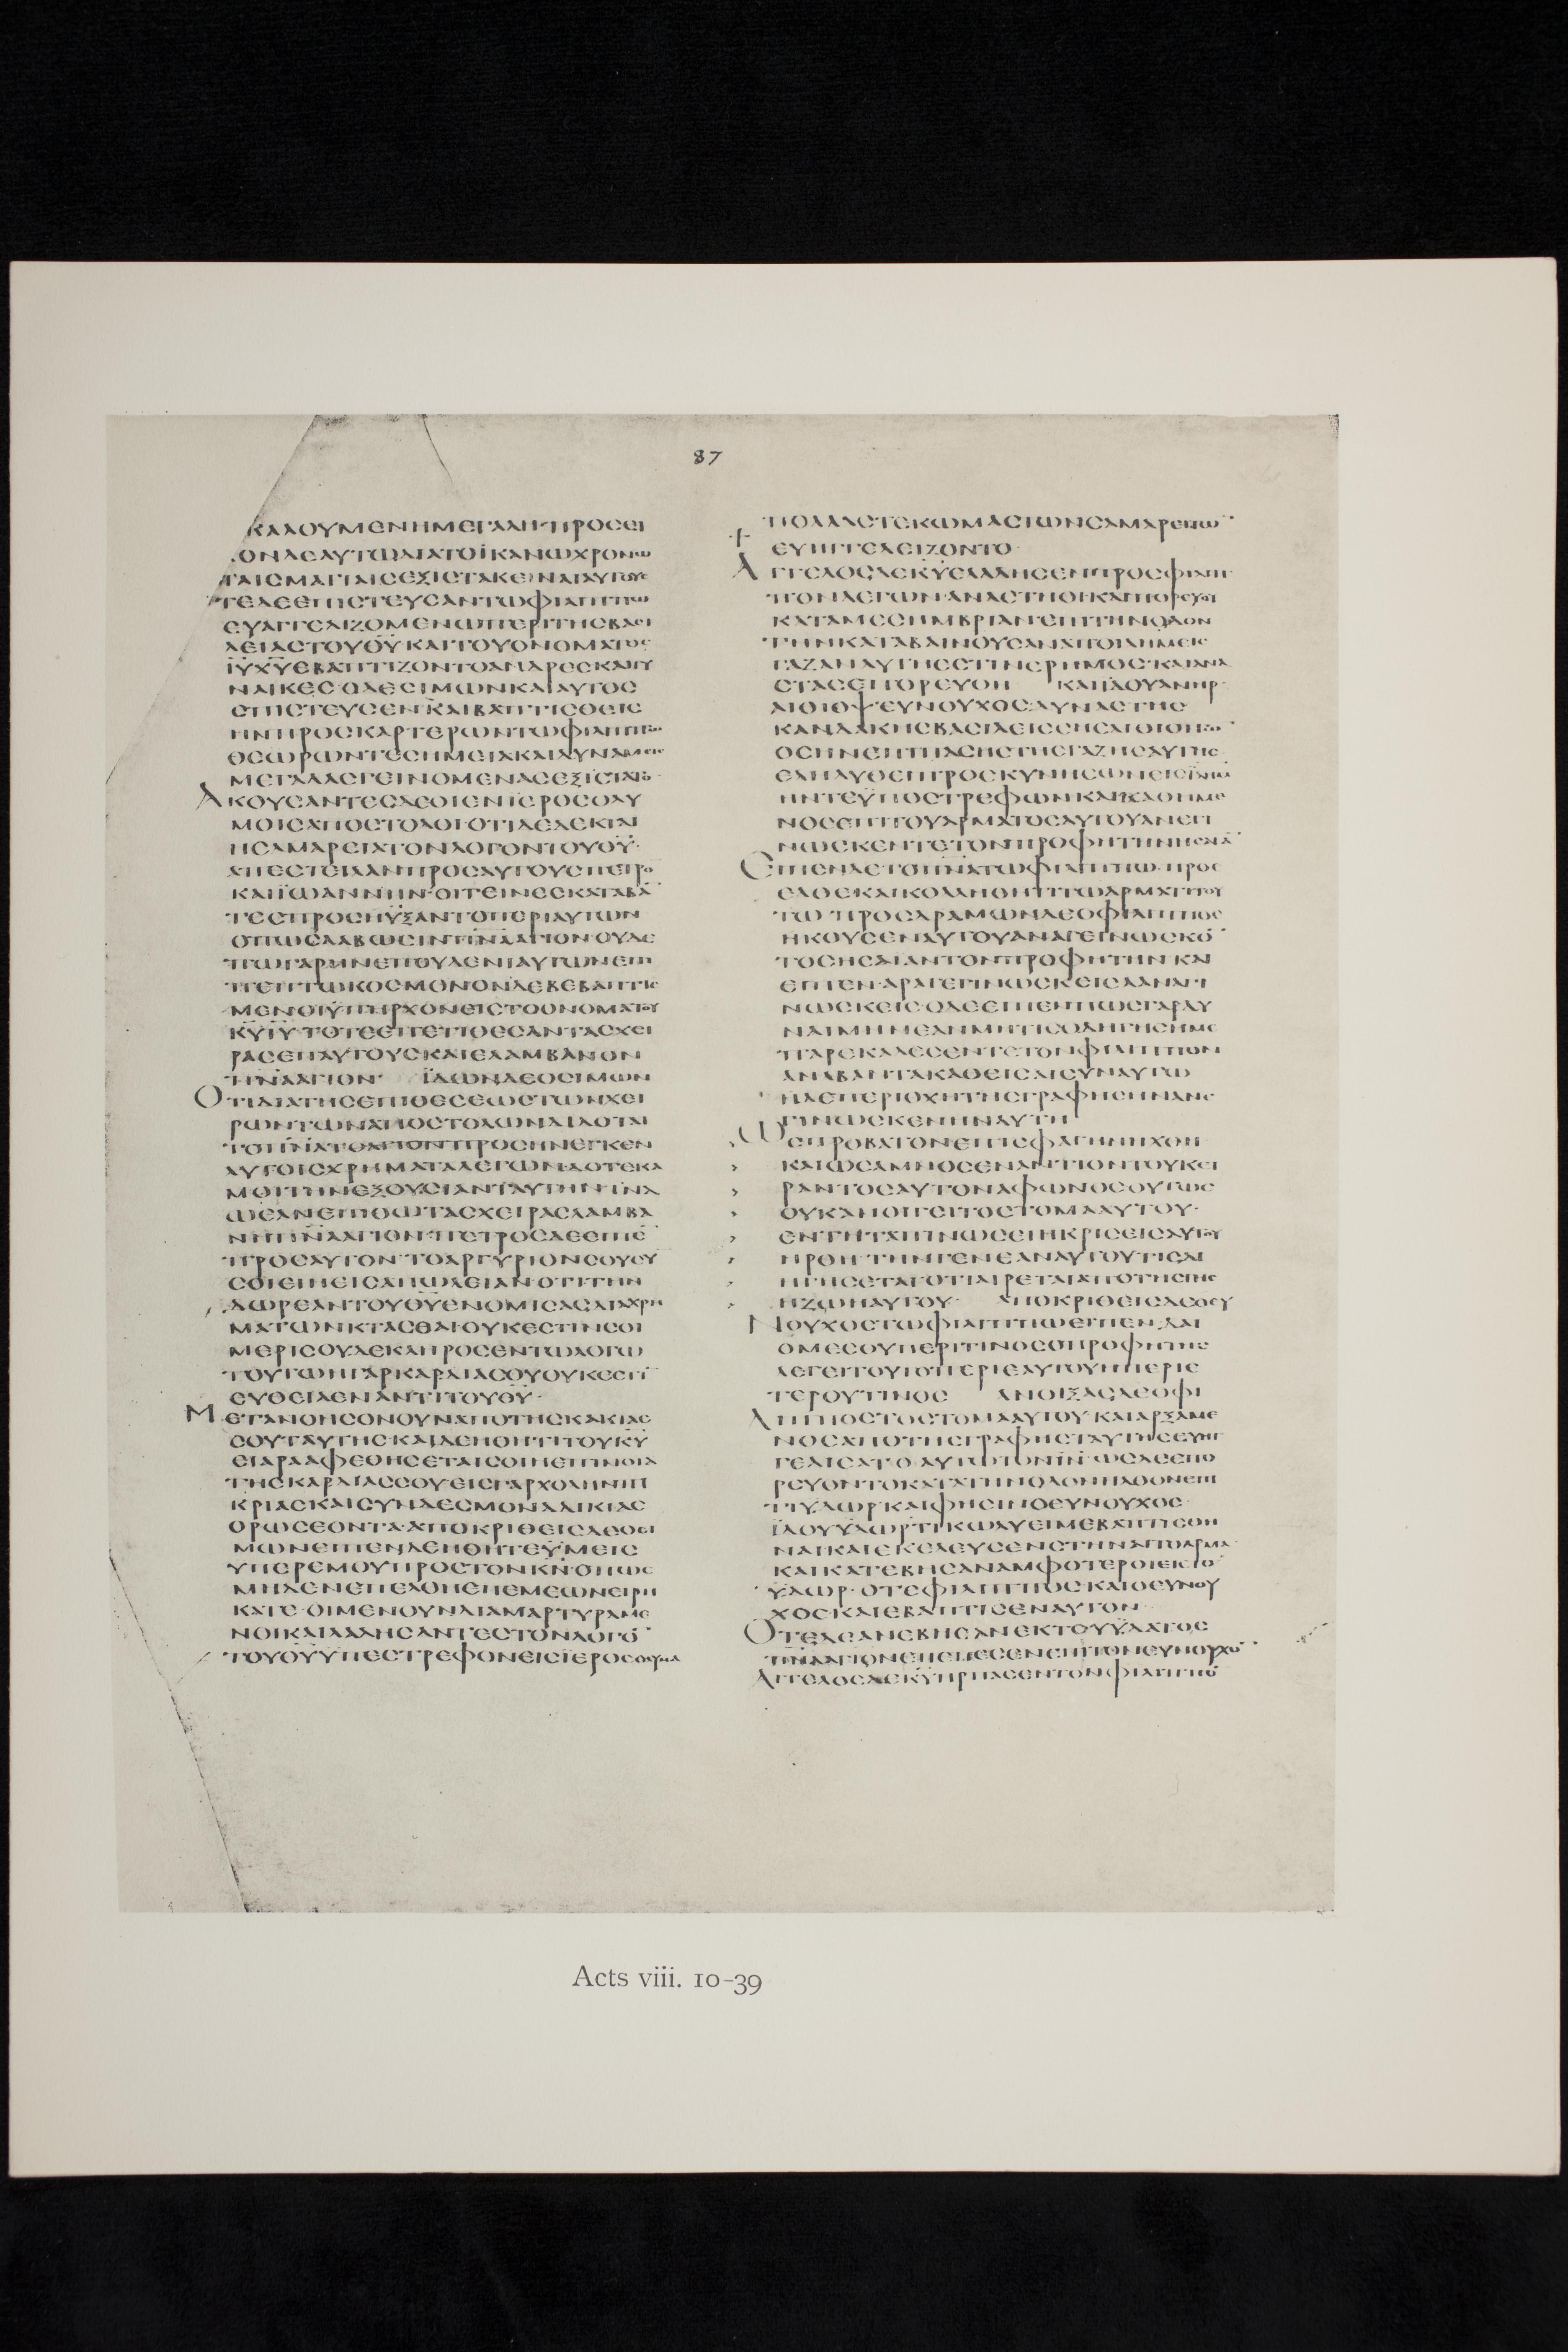 87
ΚΑΛΟΥΜΕΝΗΜΕΓΑΛΗ·ΠΡΟΣΕΙ
ΟΝΔΕΑΥΤΩΔΙΑΤΟΪΚΑΝΩΧΡΟΝΩ
ΤΑΙΣΜΑΓΙΑΙΣΕΞΙΣΤΑΚΕΝΑΙΑΥΤΟΥΣ
ΤΕΔΕΕΠΙΣΤΕΥΣΑΝΤΩΦΙΛΙΠΠΩ
ΕΥΑΓΓΕΛΙΖΟΜΕΝΩΠΕΡΙΤΗΣΒΑΣΙ
ΛΕΙΑΣΤΟΥΘΥ ΚΑΙΤΟΥΟΝΟΜΑΤΟΣ
ΙΥΧΥΕΒΑΠΤΙΖΟΝΤΟΑΝΔΡΕΣΚΑΙΓΥ
ΝΑΙΚΕΣ·ΟΔΕΣΙΜΩΝΚΑΙΑΥΤΟΣ
ΕΠΙΣΤΕΥΣΕΝ·ΚΑΙΒΑΠΤΙΣΘΕΙΣ
ΗΝΠΡΟΣΚΑΡΤΕΡΩΝΤΩΦΙΛΙΠΠΩ
ΘΕΩΡΩΝΤΕΣΗΜΕΙΑΚΑΙΔΥΝΑΜΕΙΣ
ΜΕΓΑΛΑΣΓΕΙΝΟΜΕΝΑΣΕΞΙΣΤΑΤΟ·
ΑΚΟΥΣΑΝΤΕΣΔΕΟΙΕΝΪΕΡΟΣΟΛΥ
ΜΟΙΣΑΠΟΣΤΟΛΟΙΟΤΙΔΕΔΕΚΤΑΙ
ΗΣΑΜΑΡΕΙΑΤΟΝΛΟΓΟΝΤΟΥΘΥ·
ΑΠΕΣΤΕΙΛΑΝΠΡΟΣΑΥΤΟΥΣΠΕΤΡΟ
ΚΑΙΪΩΑΝΝΗΝ·ΟΙΤΕΙΝΕΣΚΑΤΑΒΑ
ΤΕΣΠΡΟΣΗΥΞΑΝΤΟΠΕΡΙΑΥΤΩΝ
ΟΠΩΣΛΑΒΩΣΙΝΠΝΑΑΓΙΟΝ·ΟΥΔΕ
ΠΩΓΑΡΗΝΕΠΟΥΔΕΝΙΑΥΤΩΝΕΠΙ
ΠΕΠΤΩΚΟΣΜΟΝΟΝΔΕΒΕΒΑΠΤΙΣ
ΜΕΝΟΙΫΠΗΡΧΟΝΕΙΣΤΟΟΝΟΜΑΤΟΥ
ΚΥΙΥ·ΤΟΤΕΕΠΕΤΙΘΕΣΑΝΤΑΣΧΕΙ
ΡΑΣΕΠΑΥΤΟΥΣΚΑΙΕΛΑΜΒΑΝΟΝ
ΠΝΑΑΓΙΟΝ· ΪΔΩΝΔΕΟΣΙΜΩΝ
ΟΤΙΔΙΑΤΗΣΕΠΙΘΕΣΕΩΣΤΩΝΧΕΙ
ΡΩΝΤΩΝΑΠΟΣΤΟΛΩΝΔΙΔΟΤΑΙ
ΤΟΠΝΑΤΟΑΓΙΟΝΠΡΟΣΗΝΕΓΚΕΝ
ΑΥΤΟΙΣΧΡΗΜΑΤΑΛΕΓΩΝ·ΔΟΤΕΚΑ
ΜΟΙΤΗΝΕΞΟΥΣΙΑΝΤΑΥΤΗΝ·ΪΝΑ
ΩΕΑΝΕΠΙΘΩΤΑΣΧΕΙΡΑΣΛΑΜΒΑ
ΝΗΠΝΑΑΓΙΟΝ·ΠΕΤΡΟΣΔΕΕΙΠΕ
ΠΡΟΣΑΥΤΟΝ·ΤΟΑΡΓΥΡΙΟΝΣΟΥΣΥ
ΣΟΙΕΙΗΕΙΣΑΠΩΛΕΙΑΝ·ΟΤΙΤΗΝ
ΔΩΡΕΑΝΤΟΥΘΥΕΝΟΜΙΣΑΣΔΙΑΧΡΗ
ΜΑΤΩΝΚΤΑΣΘΑΙ·ΟΥΚΕΣΤΙΝΣΟΙ
ΜΕΡΙΣΟΥΔΕΚΛΗΡΟΣΕΝΤΩΛΟΓΩ
ΤΟΥΤΩΗΓΑΡΚΑΡΔΙΑΣΟΥΟΥΚΕΣΤΙ
ΕΥΘΕΙΑΕΝΑΝΤΙΤΟΥΘΥ·
ΜΕΤΑΝΟΗΣΟΝΟΥΝΑΠΟΤΗΣΚΑΚΙΑΣ
ΣΟΥΤΑΥΤΗΣΚΑΙΔΕΗΘΗΤΙΤΟΥΚΥ
ΕΙΑΡΑΑΦΕΘΗΣΕΤΑΙΣΟΙΗΕΠΙΝΟΙΑ
ΤΗΣΚΑΡΔΙΑΣΣΟΥ·ΕΙΣΓΑΡΧΟΛΗΝΠΙ
ΚΡΙΑΣΚΑΙΣΥΝΔΕΣΜΟΝΑΔΙΚΙΑΣ
ΟΡΩΣΕΟΝΤΑ·ΑΠΟΚΡΙΘΕΙΣΔΕΟΣΙ
ΜΩΝΕΙΠΕΝΔΕΗΘΗΤΕΫΜΕΙΣ
ΥΠΕΡΕΜΟΥΠΡΟΣΤΟΝΚΝ·ΟΠΩΣ
ΜΗΔΕΝΕΠΕΛΘΗΕΠΕΜΕΩΝΕΙΡΗ
ΚΑΤΕ·ΟΙΜΕΝΟΥΝΔΙΑΜΑΡΤΥΡΑΜΕ
ΝΟΙΚΑΙΛΑΛΗΣΑΝΤΕΣΤΟΝΛΟΓΟ
ΤΟΥΘΥΫΠΕΣΤΡΕΦΟΝΕΙΣΪΕΡΟΣΟΛΥΜΑ
ΠΟΛΛΑΣΤΕΚΩΜΑΣΤΩΝΣΑΜΑΡΕΙΤΩ
ΕΥΗΓΓΕΛΕΙΖΟΝΤΟ·
ΑΓΓΕΛΟΣΔΕΚΥΕΛΑΛΗΣΕΝΠΡΟΣΦΙΛΙΠ
ΠΟΝΛΕΓΩΝ·ΑΝΑΣΤΗΘΙΚΑΙΠΟΡΕΥΟΥ
ΚΑΤΑΜΕΣΗΜΒΡΙΑΝ·ΕΠΙΤΗΝΟΔΟΝ
ΤΗΝΚΑΤΑΒΑΙΝΟΥΣΑΝΑΠΟΙΛΗΜΕΙΣ
ΓΑΖΑΝΑΥΤΗΕΣΤΙΝΕΡΗΜΟΣ·ΚΑΙΑΝΑ
ΣΤΑΣΕΠΟΡΕΥΘΗ ΚΑΙΪΔΟΥΑΝΗΡ·
ΑΙΘΙΟΨΕΥΝΟΥΧΟΣΔΥΝΑΣΤΗΣ
ΚΑΝΔΑΚΗΣΒΑΣΙΛΕΙΣΣΗΣΑΙΘΙΟΠΩ
ΟΣΗΝΕΠΙΠΑΣΗΣΤΗΣΓΑΖΗΣΑΥΤΗΣ
ΕΛΗΛΥΘΕΙΠΡΟΣΚΥΝΗΣΩΝΕΙΣΪΛΗΜ
ΗΝΤΕΫΠΟΣΤΡΕΦΩΝΚΑΙΚΑΘΗΜΕ
ΝΟΣΕΠΙΤΟΥΑΡΜΑΤΟΣΑΥΤΟΥΑΝΕΓΙ
ΝΩΣΚΕΝΤΕΤΟΝΠΡΟΦΗΤΗΝΗΣΑΪΑ
ΕΙΠΕΝΔΕΤΟΠΝΑΤΩΦΙΛΙΠΠΩ·ΠΡΟΣ
ΕΛΘΕΚΑΙΚΟΛΛΗΘΗΤΙΤΩΑΡΜΑΤΙΤΟΥ
ΤΩ·ΠΡΟΣΔΡΑΜΩΝΔΕΟΦΙΛΙΠΠΟΣ
ΗΚΟΥΣΕΝΑΥΤΟΥΑΝΑΓΕΙΝΩΣΚΟ
ΤΟΣΗΣΑΙΑΝΤΟΝΠΡΟΦΗΤΗΝ ΚΑΙ
ΕΙΠΕΝ·ΑΡΑΓΕΓΙΝΩΣΚΕΙΣΑΑΝΑΓΙ
ΝΩΣΚΕΙΣ·ΟΔΕΕΙΠΕΝΠΩΣΓΑΡΔΥ
ΝΑΙΜΗΝΕΑΝΜΗΤΙΣΟΔΗΓΗΣΗΜΕ
ΠΑΡΕΚΑΛΕΣΕΝΤΕΤΟΝΦΙΛΙΠΠΟΝ
ΑΝΑΒΑΝΤΑΚΑΘΕΙΣΑΙΣΥΝΑΥΤΩ
ΗΔΕΠΕΡΙΟΧΗΤΗΣΓΡΑΦΗΣΗΝΑΝΕ
ΓΙΝΩΣΚΕΝΗΝΑΥΤΗ
ΩΣΠΡΟΒΑΤΟΝΕΠΙΣΦΑΓΗΝΗΧΘΗ
ΚΑΙΩΣΑΜΝΟΣΕΝΑΝΤΙΟΝΤΟΥΚΕΙ
ΡΑΝΤΟΣΑΥΤΟΝΑΦΩΝΟΣΟΥΤΩΣ
ΟΥΚΑΝΟΙΓΕΙΤΟΣΤΟΜΑΑΥΤΟΥ·
ΕΝΤΗΤΑΠΙΝΩΣΕΙΗΚΡΙΣΕΙΣΑΥΤΟΥ
ΗΡΘΗ·ΤΗΝΓΕΝΕΑΝΑΥΤΟΥΤΙΣΔΙ
ΗΓΗΣΕΤΑΙ·ΟΤΙΑΙΡΕΤΑΙΑΠΟΤΗΣΓΗΣ
ΗΖΩΗΑΥΤΟΥ· ΑΠΟΚΡΙΘΕΙΣΔΕΟΕΥ
ΝΟΥΧΟΣΤΩΦΙΛΙΠΠΩΕΙΠΕΝ·ΔΑΙ
ΟΜΕΣΟΥΠΕΡΙΤΙΝΟΣΟΠΡΟΦΗΤΗΣ
ΛΕΓΕΙΤΟΥΤΟΠΕΡΙΕΑΥΤΟΥΗΠΕΡΙΕ
ΤΕΡΟΥΤΙΝΟΣ ΑΝΟΙΞΑΣΔΕΟΦΙ
ΛΙΠΠΟΣΤΟΣΤΟΜΑΑΥΤΟΥ·ΚΑΙΑΡΞΑΜΕ
ΝΟΣΑΠΟΤΗΣΓΡΑΦΗΣΤΑΥΤΗΣΕΥΗΓ
ΓΕΛΙΣΑΤΟΑΥΤΩΤΟΝΙΝ·ΩΣΔΕΕΠΟ
ΡΕΥΟΝΤΟΚΑΤΑΤΗΝΟΔΟΝΗΛΘΟΝΕΠΙ
ΤΙΥΔΩΡ·ΚΑΙΦΗΣΙΝΟΕΥΝΟΥΧΟΣ·
ΪΔΟΥΫΔΩΡΤΙΚΩΛΥΕΙΜΕΒΑΠΤΙΣΘΗ
ΝΑΙΚΑΙΕΚΕΛΕΥΣΕΝΣΤΗΝΑΙΤΟΑΡΜΑ·
ΚΑΙΚΑΤΕΒΗΣΑΝΑΜΦΟΤΕΡΟΙΕΙΣΤΟ
ΫΔΩΡ·ΟΤΕΦΙΛΙΠΠΟΣΚΑΙΟΕΥΝΟΥ
ΧΟΣΚΑΙΕΒΑΠΤΙΣΕΝΑΥΤΟΝ·
ΟΤΕΔΕΑΝΕΒΗΣΑΝΕΚΤΟΥΫΔΑΤΟΣ
ΠΝΑΑΓΙΟΝΕΠΕΠΕΣΕΝΕΠΙΤΟΝΕΥΝΟΥΧΟ
ΑΓΓΕΛΟΣΔΕΚΥΗΡΠΑΣΕΝΤΟΝΦΙΛΙΠΠΟ
Acts viii. 10–39